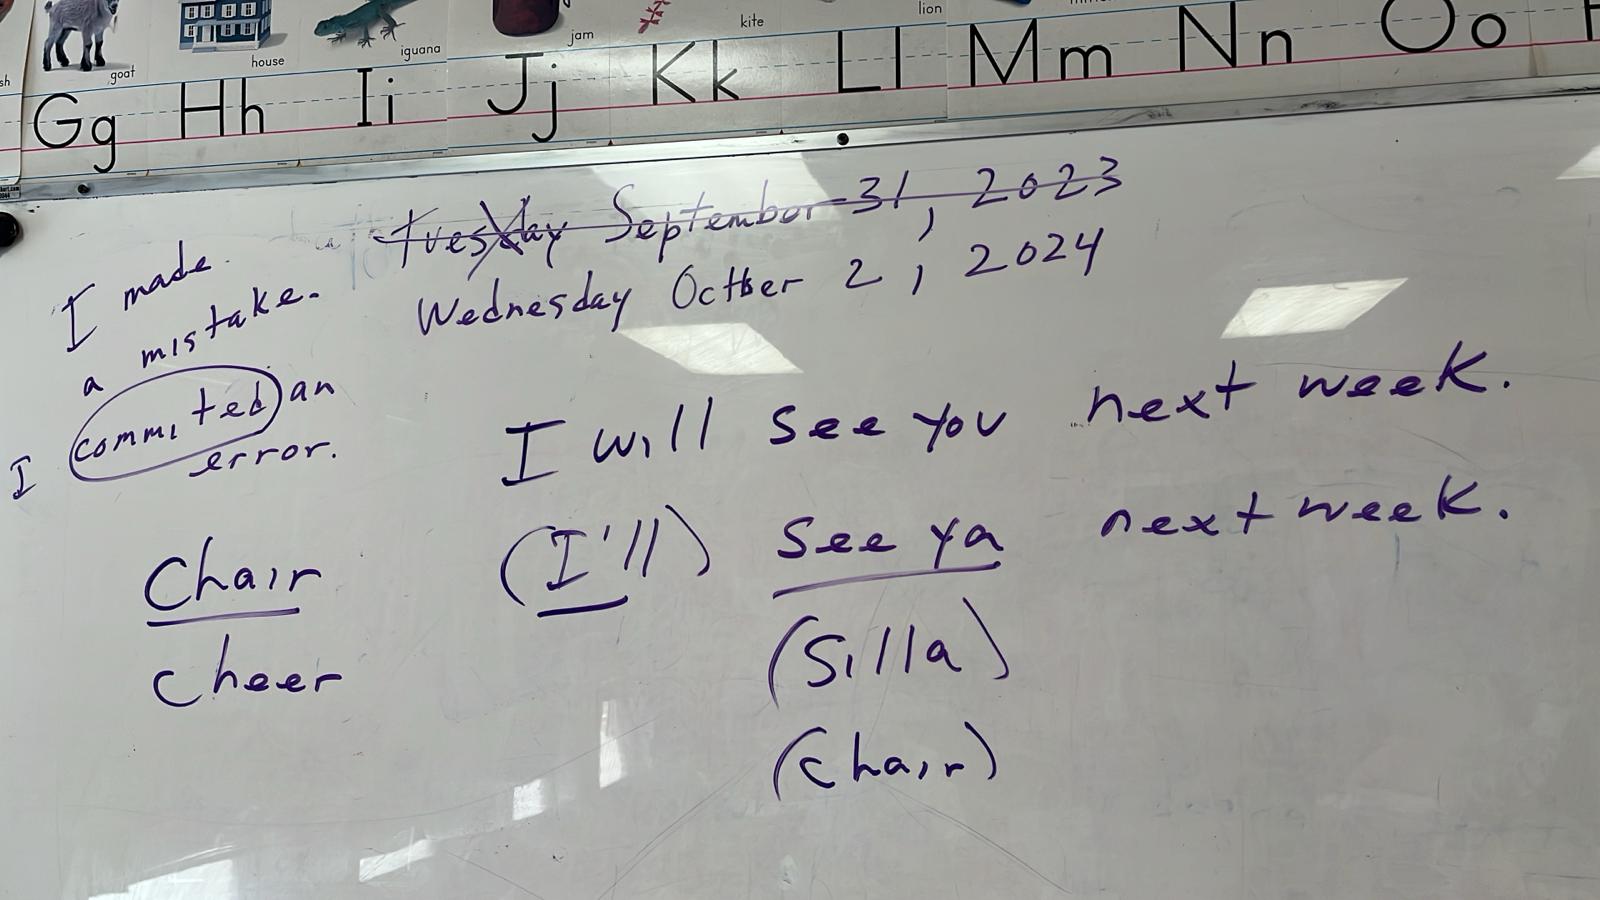 goat
house
iguana
jam
kite
lion
Gg Hh Ii Jj Kk Ll Mm Nn Oo
Tuesday September 31, 2023
Wednesday Octber 2, 2024
I made
a mistake.
I commited an
error.
I will see you next week.
(I'll) see ya next week.
Chair
cheer
(Silla)
(chair)